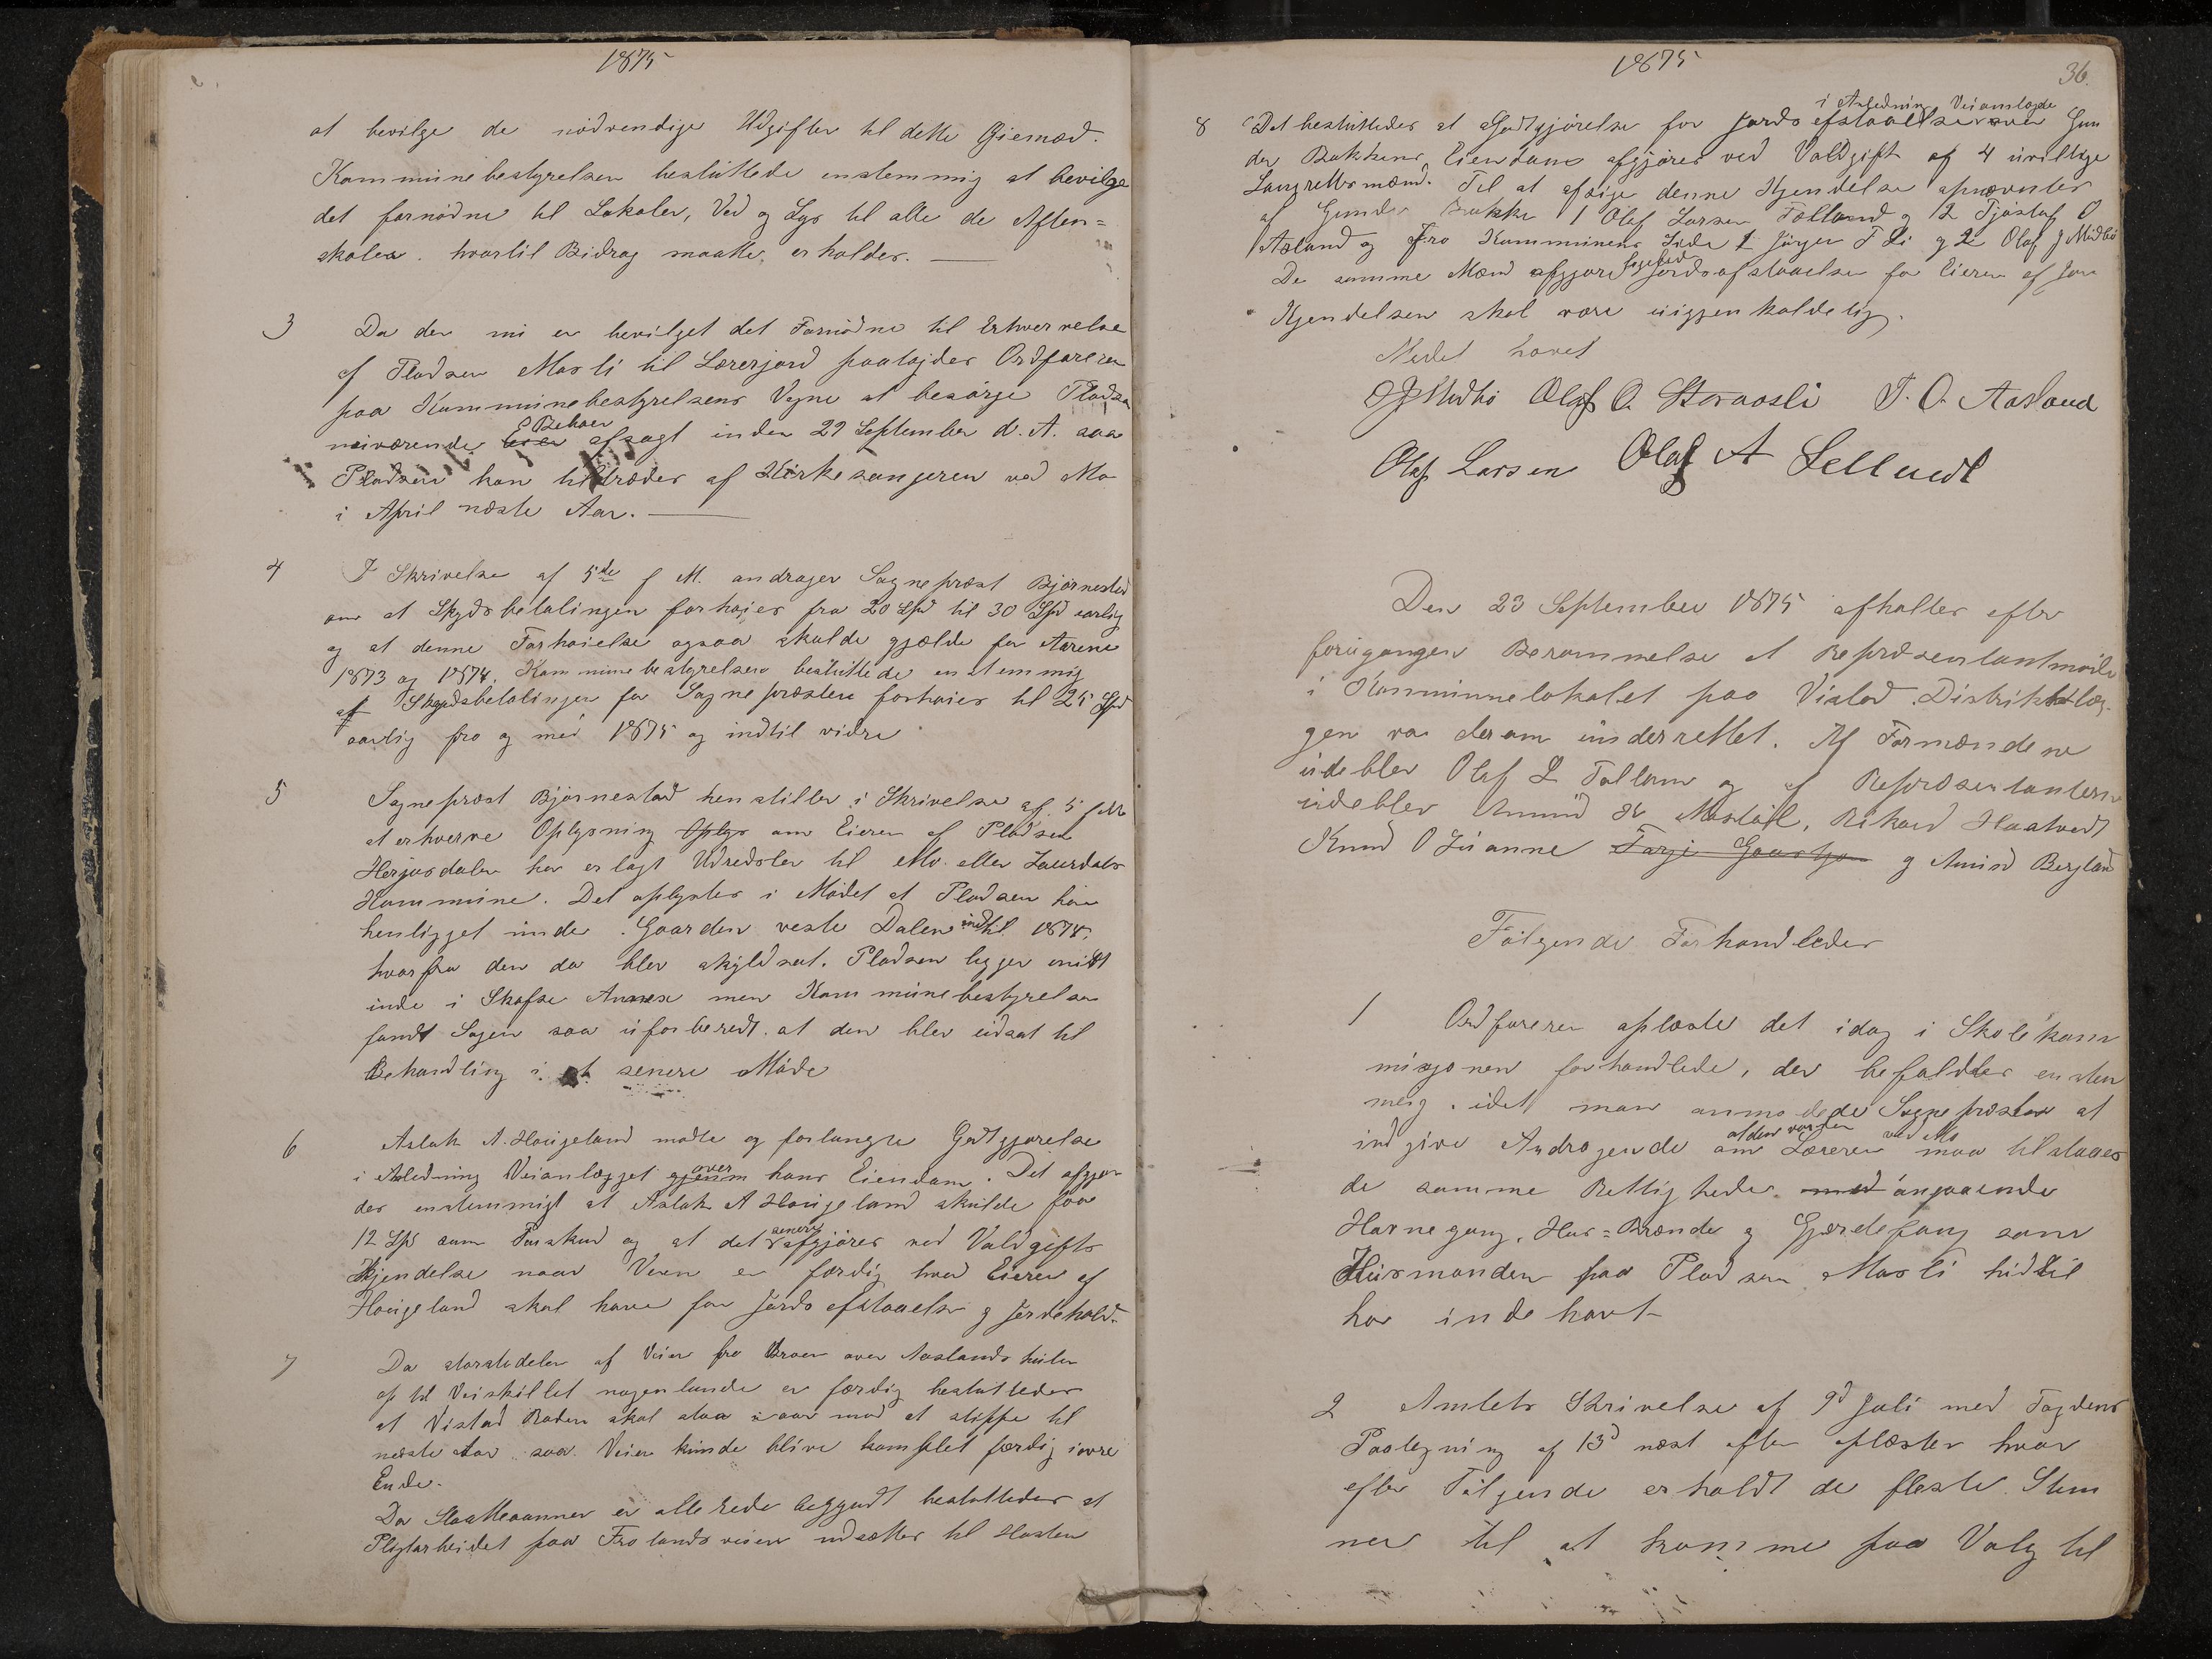 1875
at bevilge de nödvendige Udgifter til dette Öiemed.
Kommunebestyrelsen besluttede enstemmig at bevilge
det fornödne til Lokaler, Ved og Lys til alle de Aften=
skoler. hvortil Bidrag maatte erholdes. —
3 Da der nu er bevilget det Fornödne til Erhvervelse
af Pladsen Mosli til Lærerjord paalagdes Ordföreren
paa Kommunebestyrelsens Vegne at besörge Pladsens
nuværende Beboer afsagt inden 29 September d. A. saa
Pladsen kan tiltrædes af Kirkesangeren ved Mo
i April næste Aar. —
4 I Skrivelse af 5de f M. andrager Sognepræst Björnestad
om at Skydsbetalingen forhöies fra 20 Spd til 30 Spd aarlig
og at denne Forhöielse ogsaa skulde gjælde for Aarene
1873 og 1874. Kommunebestyrelsen besluttede enstemmig
at Skydsbetalingen for Sognepræsten forhöies til 25 Spd
aarlig fra og med 1875 og indtil videre
5 Sognepræst Björnestad henstiller i Skrivelse af 5 f M
at erhverve Oplysning Oplys om Eieren af Pladsen
Herjusdalen har erlagt Udredsler til Mo eller Laurdals
Kommune. Det oplystes i Mödet at Pladsen har
henligget under Gaarden veste Dalen indtil 1874,
hvorfra den da blev skyldsat. Pladsen ligger midt
inde i Skafse Annex men Kommunebestyrelsen
fandt Sagen saa uforberedt at den blev udsat til
Behandling i et senere Möde
6 Aslak A. Haugeland mödte og forlangte Godtgjörelse
i Anledning Veianlægget gjenm over hans Eiendom. Det afgjor
des enstemmigt at Aslak A Haugeland skulde faa
12 Spd som Forskud og at det senere afgjöres ved Voldgifts
Kjendelse naar Veien er færdig hvad Eieren af
Haugeland skal have for Jordsafstaaelse og Gjerdehold.
7 Da störstedelen af Veien fra Broen over Aaslandshölen
op til Veiskillet nogenlunde er færdig besluttedes
at Vistad Roden skal staa i aar mod at slippe til
næste Aar saa Veien kunde blive komplet færdig i övre
Ende.
Da Slaatteaannen er allerede begyndt besluttedes at
Pligtarbeidet paa Frolandsveien udsættes til Hösten
1875
36.
8 Det besluttedes at Godtgjörelse for Jordsafstaaelse i Anledning Veianlægde over Gun
der Bakkens Eiendom afgjöres ved Voldgift af 4 uvillige
Laugrettesmænd. Til at afsige denne Kjendelse opnævntes
af Gunder Bakke 1 Olaf Larsen Fælland og 2 Tjöstaf O
Aasland og fra Kommunens Side 1 Jörgen T Li og 2 Olaf J Midbö
De samme Mænd afgjöre ligeled Jordsafstaaelsen for Eieren af
Kjendelsen skal være uigjenkaldelig.
Mödet hævet
O J Midbö Olaf O. Storaasli T. O. Aasland
Olaf Larsen Olaf A Selland
Den 23 September 1875 afholtes efter
forugangen Berammelse et Repræsentantmöde
i Kommunelokalet paa Vistad. Distriktslæ
gen var derom underrettet. Af Formændene
udeblev Olaf L Falland og af Repræsentanterne
udeblev Amund K Mostöl, Rikard Haatvedt
Knud O Juanne Tarje Gaastjo og Amund Bergland
Fölgende Forhandledes
1 Ordföreren oplæste det idag i Skolekom
misjonen forhandlede, der befaldtes enstem
mig. idet man anmodede Sognepræsten at
indgive Andragende om at den vordende Læreren ved Mo maa tilstaaes
de samme Rettigheder med angaaende
Havnegang, Hus=Brænde og Gjerdefang som
Husmanden paa Pladsen Mosli hidtil
har indehavt
2 Amtets Skrivelse af 9d Juli med Fogdens
Paategning af 13d næst efter oplæstes hvor
efter Fölgende erholdt de fleste Stem
mer til at komme paa Valg til